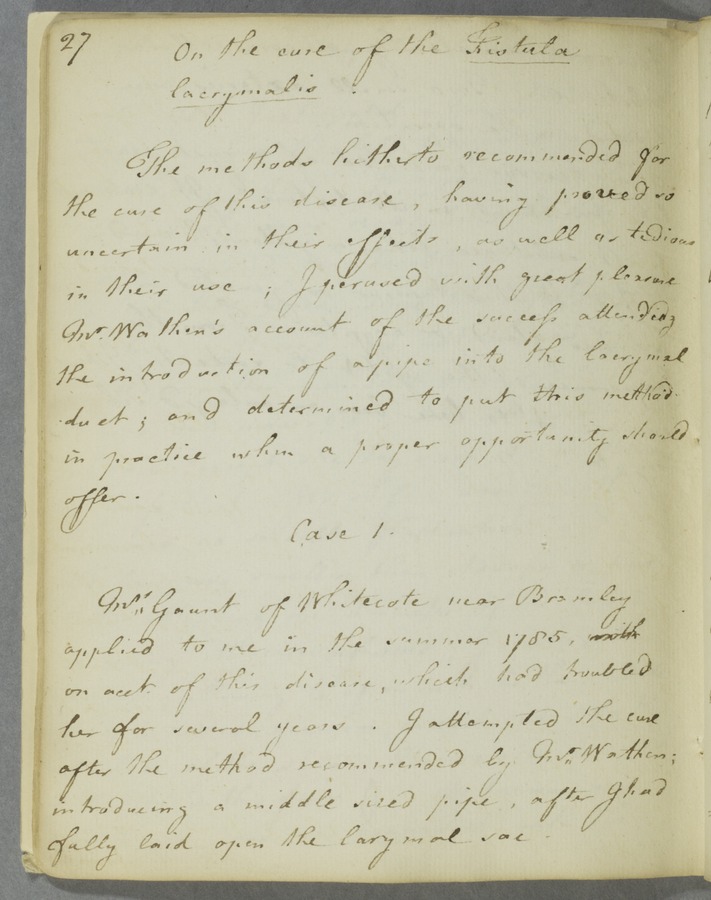 27
On the cure of the Fistula
lacrymalis .
The methods hitherto recommended for
the cure of this disease, having proved so
uncertain in their effects, as well as tedious
in their use ; I perused with great pleasure
Mr. Wathen's account of the success attending
the introduction of a pipe into the lacrymal
duct ; and determined to put this method
in practice when a proper opportunity should
offer .
Case 1 .
Mrs. Gaunt of Whitecote near Bramley
applied to me in the summer 1785, with
on acct. of this disease, which had troubled
her for several years . I attempted the cure
after the method recommended by Mr. Wathen ;
introducing a middle sized pipe, after I had
fully laid open the larymal sac .